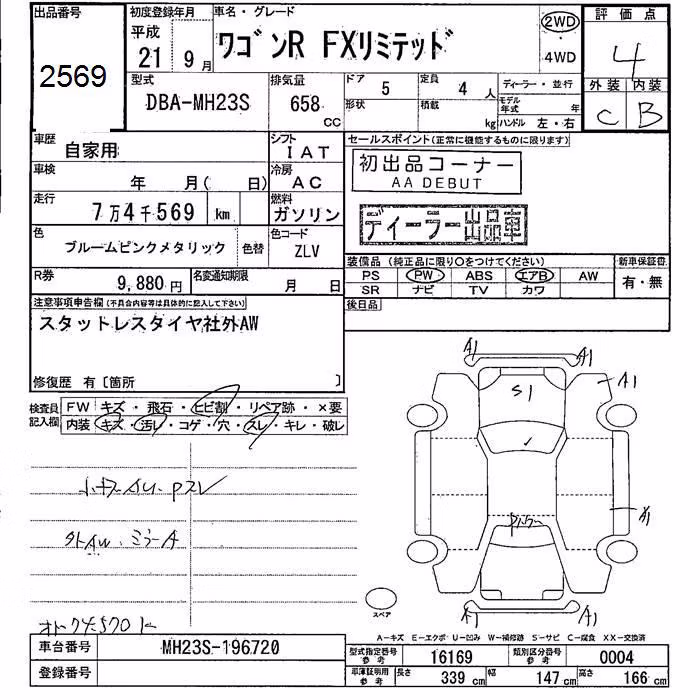 出品番号
2569
初度登録年月
平成
21 9月
車名・グレード
ワゴンR FXリミテッド
2WD
4WD
評価点
4
外装 内装
C B
型式
DBA-MH23S
排気量
658
CC
ドア 5
形状
定員 4 人
積載 kg
ディーラー・並行
モデル年式 年
ハンドル 左・右
車歴
自家用
シフト
IAT
車検
年 月( 日)
冷房
AC
走行
7万4千569 km
燃料
ガソリン
色
ブルームピンクメタリック
色替
色コード
ZLV
R券
9,880円
名変通知期限
月 日
セールスポイント(正常に機能するものに限ります)
初出品コーナー
AA DEBUT
ディーラー出品車
装備品(純正品に限り○をつけてください)
新車保証書
PS PW ABS エアB AW
SR ナビ TV カワ
有・無
後日品
注意事項申告欄(不具合内容等は具体的に記入して下さい)
スタットレスタイヤ社外AW
修復歴 有〔箇所 〕
検査員
記入欄
FW キズ・飛石・ヒビ割・リペア跡・×要
内装・キズ・汚レ・コゲ・穴・スレ・キレ・破レ
外AW・ミラーA
A1
A1
S1
A1
A1
A1
A1
スペア
A-キズ E-エクボ U-凹み W-補修跡 S-サビ C-腐食 XX-交換済
車台番号
MH23S-196720
登録番号
型式指定番号
参考
16169
類別区分番号
参考
0004
車庫証明用
参考
長さ 339 cm 幅 147 cm 高さ 166 cm